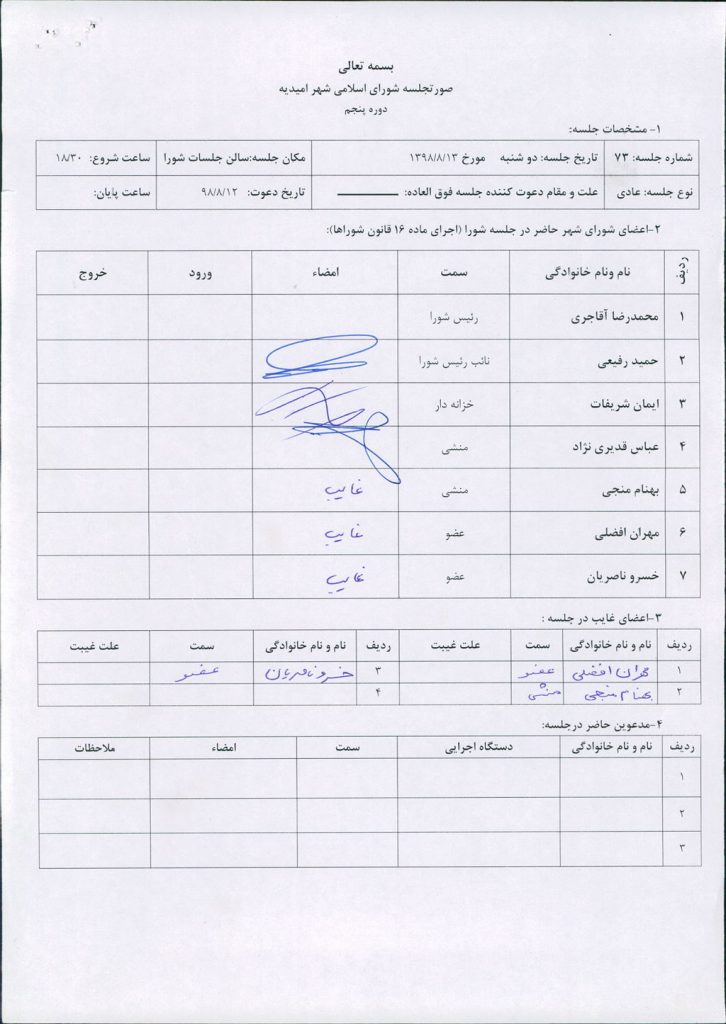 بسمه تعالی
صورتجلسه شورای اسلامی شهر امیدیه
دوره پنجم
۱- مشخصات جلسه:
شماره جلسه: ۷۳ تاریخ جلسه: دو شنبه مورخ ۱۳۹۸/۸/۱۳ مکان جلسه:سالن جلسات شورا ساعت شروع: ۱۸/۳۰
نوع جلسه: عادی علت و مقام دعوت کننده جلسه فوق العاده: ـــــــــــــ تاریخ دعوت: ۹۸/۸/۱۲ ساعت پایان:
۲-اعضای شورای شهر حاضر در جلسه شورا (اجرای ماده ۱۶ قانون شوراها):
ردیف نام ونام خانوادگی سمت امضاء ورود خروج
۱ محمدرضا آقاجری رئیس شورا
۲ حمید رفیعی نائب رئیس شورا
۳ ایمان شریفات خزانه دار
۴ عباس قدیری نژاد منشی
۵ بهنام منجی منشی غایب
۶ مهران افضلی عضو غایب
۷ خسرو ناصریان عضو غایب
۳-اعضای غایب در جلسه :
ردیف نام و نام خانوادگی سمت علت غیبت ردیف نام و نام خانوادگی سمت علت غیبت
۱ مهران افضلی عضو ۳ خسرو ناصریان عضو
۲ بهنام منجی منشی ۴
۴-مدعوین حاضر درجلسه:
ردیف نام و نام خانوادگی دستگاه اجرایی سمت امضاء ملاحظات
۱
۲
۳